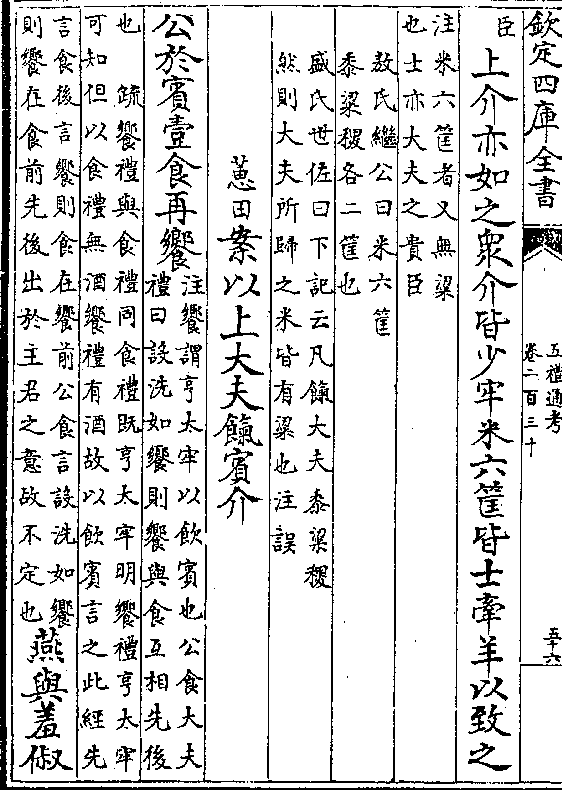 欽定四庫全書
五禮通考
卷二百三十
五十六
臣
上介亦如之衆介皆少牢米六筐皆士牽羊以致之
注米六筐者又無粱
也士亦大夫之貴臣
敖氏繼公曰米六筐
黍粱稷各二筐也
盛氏世佐曰下記云凡餼大夫黍粱稷
然則大夫所歸之米皆有粱也注誤
蕙田案以上大夫餼賓介
公於賓壹食再饗
注饗謂亨太牢以飲賓也公食大夫
禮曰設洗如饗則饗與食互相先後
也 疏饗禮與食禮同食禮既亨太牢明饗禮亨太牢
可知但以食禮無酒饗禮有酒故以飲賓言之此經先
言食後言饗則食在饗前公食言設洗如饗
則饗在食前先後出於主君之意故不定也
燕與羞俶